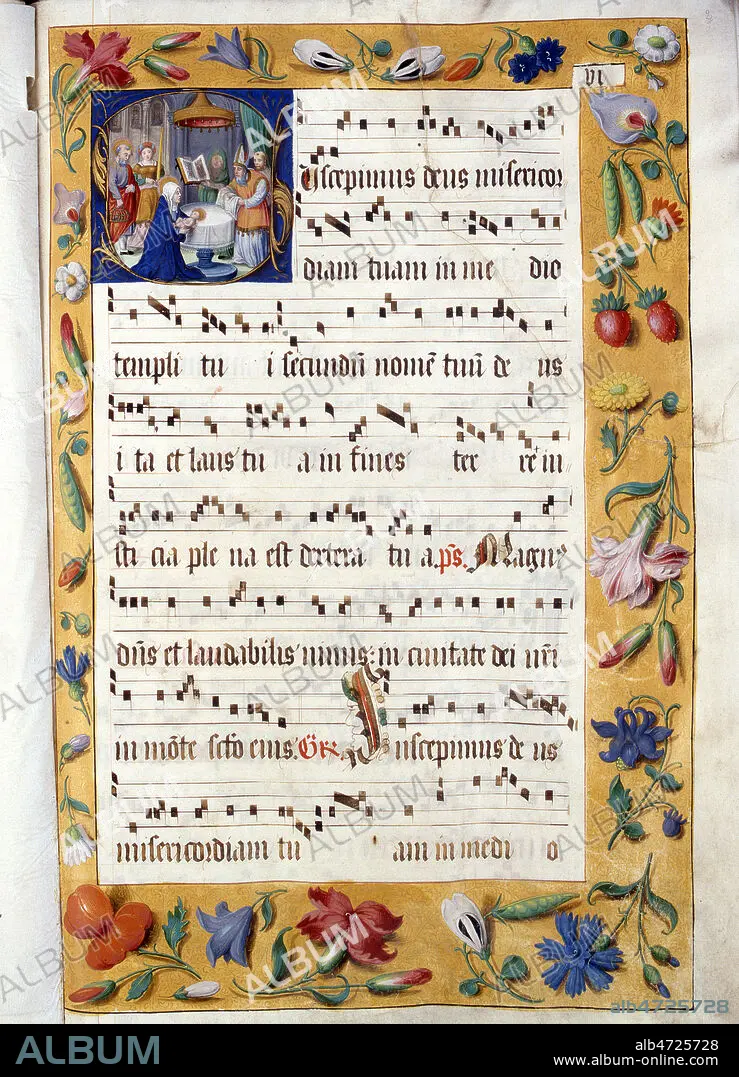 VI
Uscepimus deus misericor
diam tuam in me dio
templi tu i secundū nomē tuū de us
i ta et laus tu a in fines ter re iu
sti cia ple na est dextera tu a. ps. Magn⁹
dn̄s et laudabilis nimis: in ciuitate dei nr̄i
in mōte scō eius. Gr̄. Suscepimus de us
misericordiam tu am in medi o
ALBUM
alb4725728
alb4725728
album-online.com